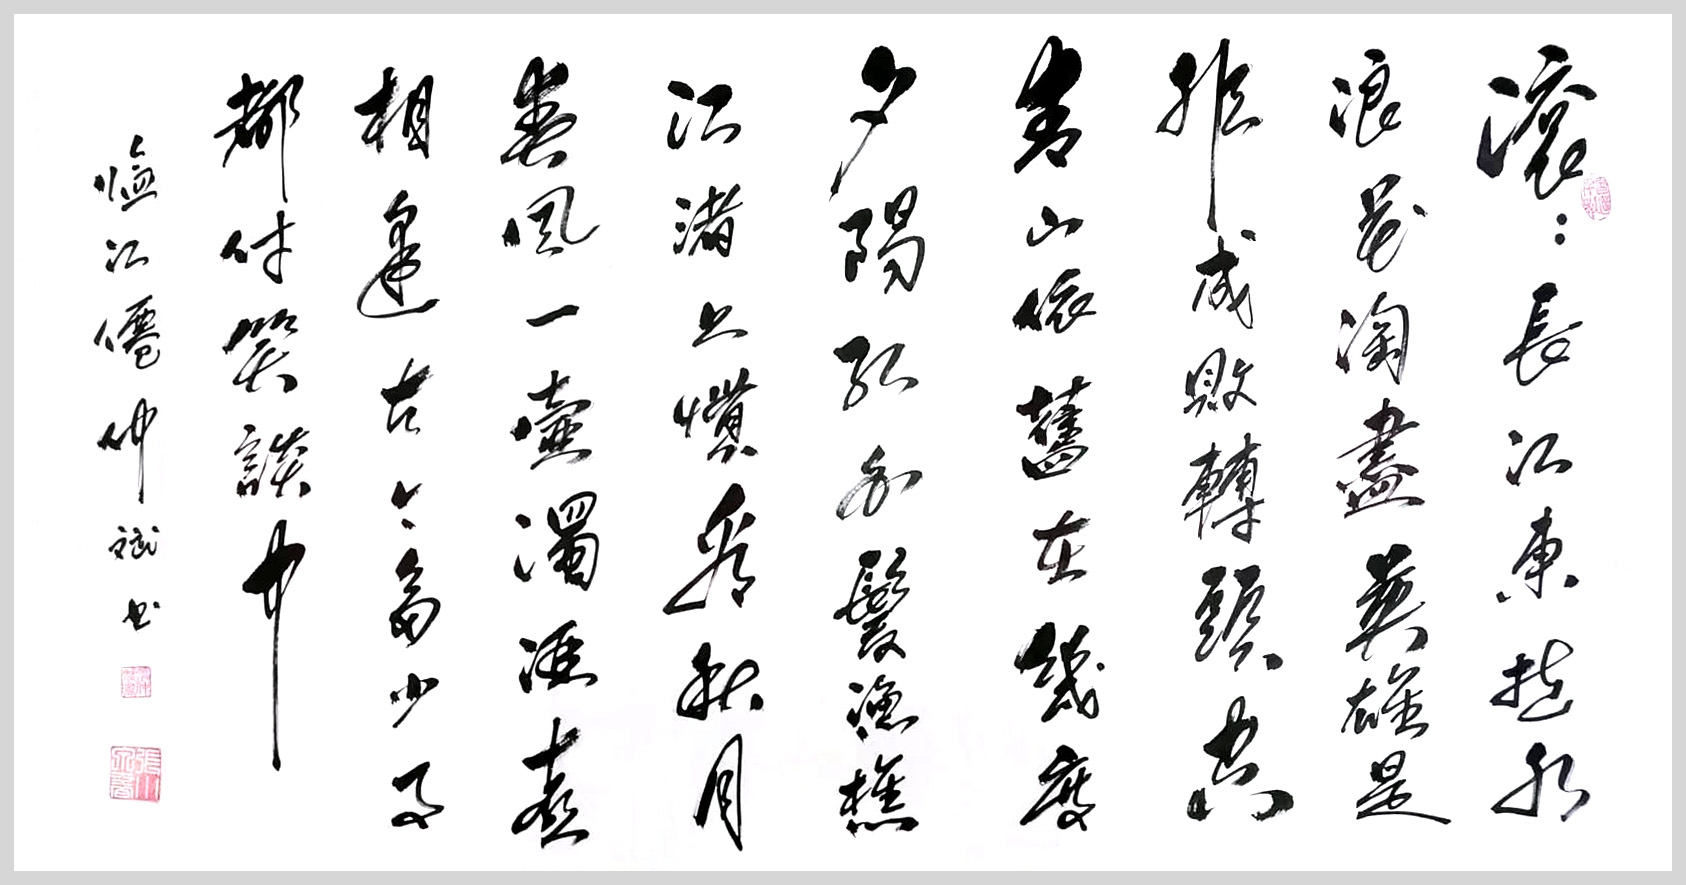 滾滾長江東逝水
浪花淘盡英雄是
非成敗轉頭空
青山依舊在幾度
夕陽紅白髮漁樵
江渚上慣看秋月
春風一壺濁酒喜
相逢古今多少事
都付笑談中
臨江僊仲斌书